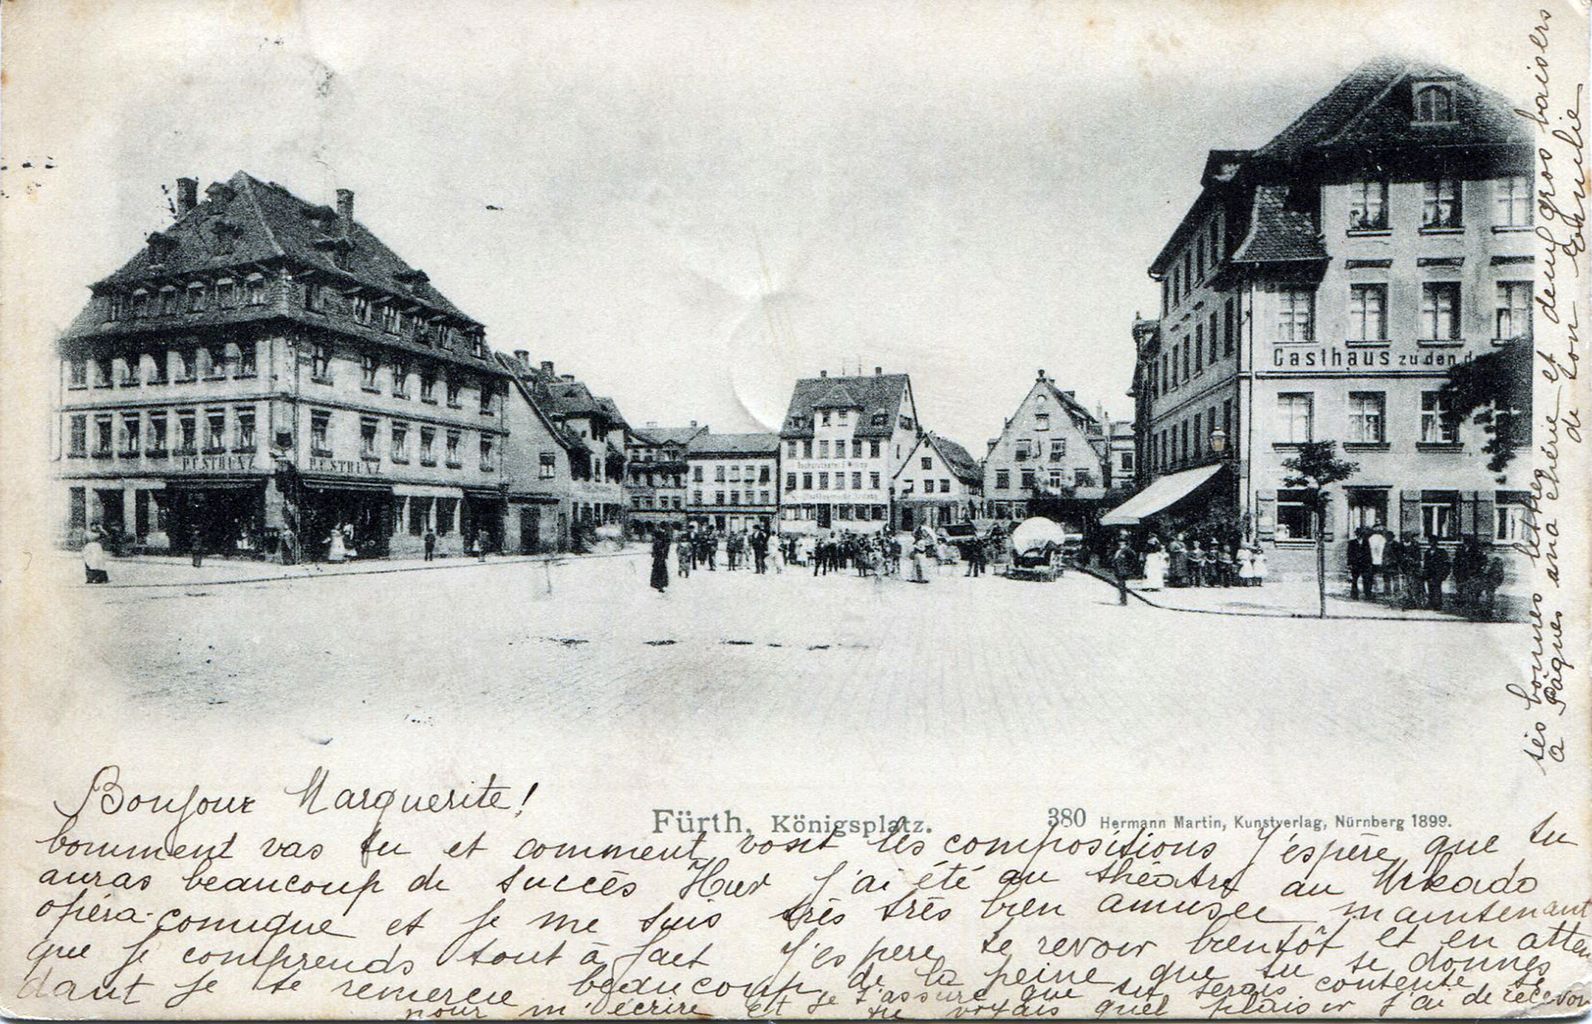 P. STRENZ
P. STRENZ
Gasthaus zu den dr
Bonjour Marguerite!
Fürth, Königsplatz.
380 Hermann Martin, Kunstverlag, Nürnberg 1899.
Comment vas tu et comment vont les compositions J'éspère que tu
auras beaucoup de succès Hier j'ai été au théâtre au Mikado
opéra-comique et je me suis très très bien amusée maintenant
que je comprends tout à fait J'espere te revoir bientôt et en atten
dant je te remercie beaucoup de la peine que tu te donnes
pour m'écrire Et je t'assure que tu serais contente si
tu voyais quel plaisir j'ai de recevoir
tes bonnes lettres
a Pâques ma chérie et deux gros baisers
de ton Emilie